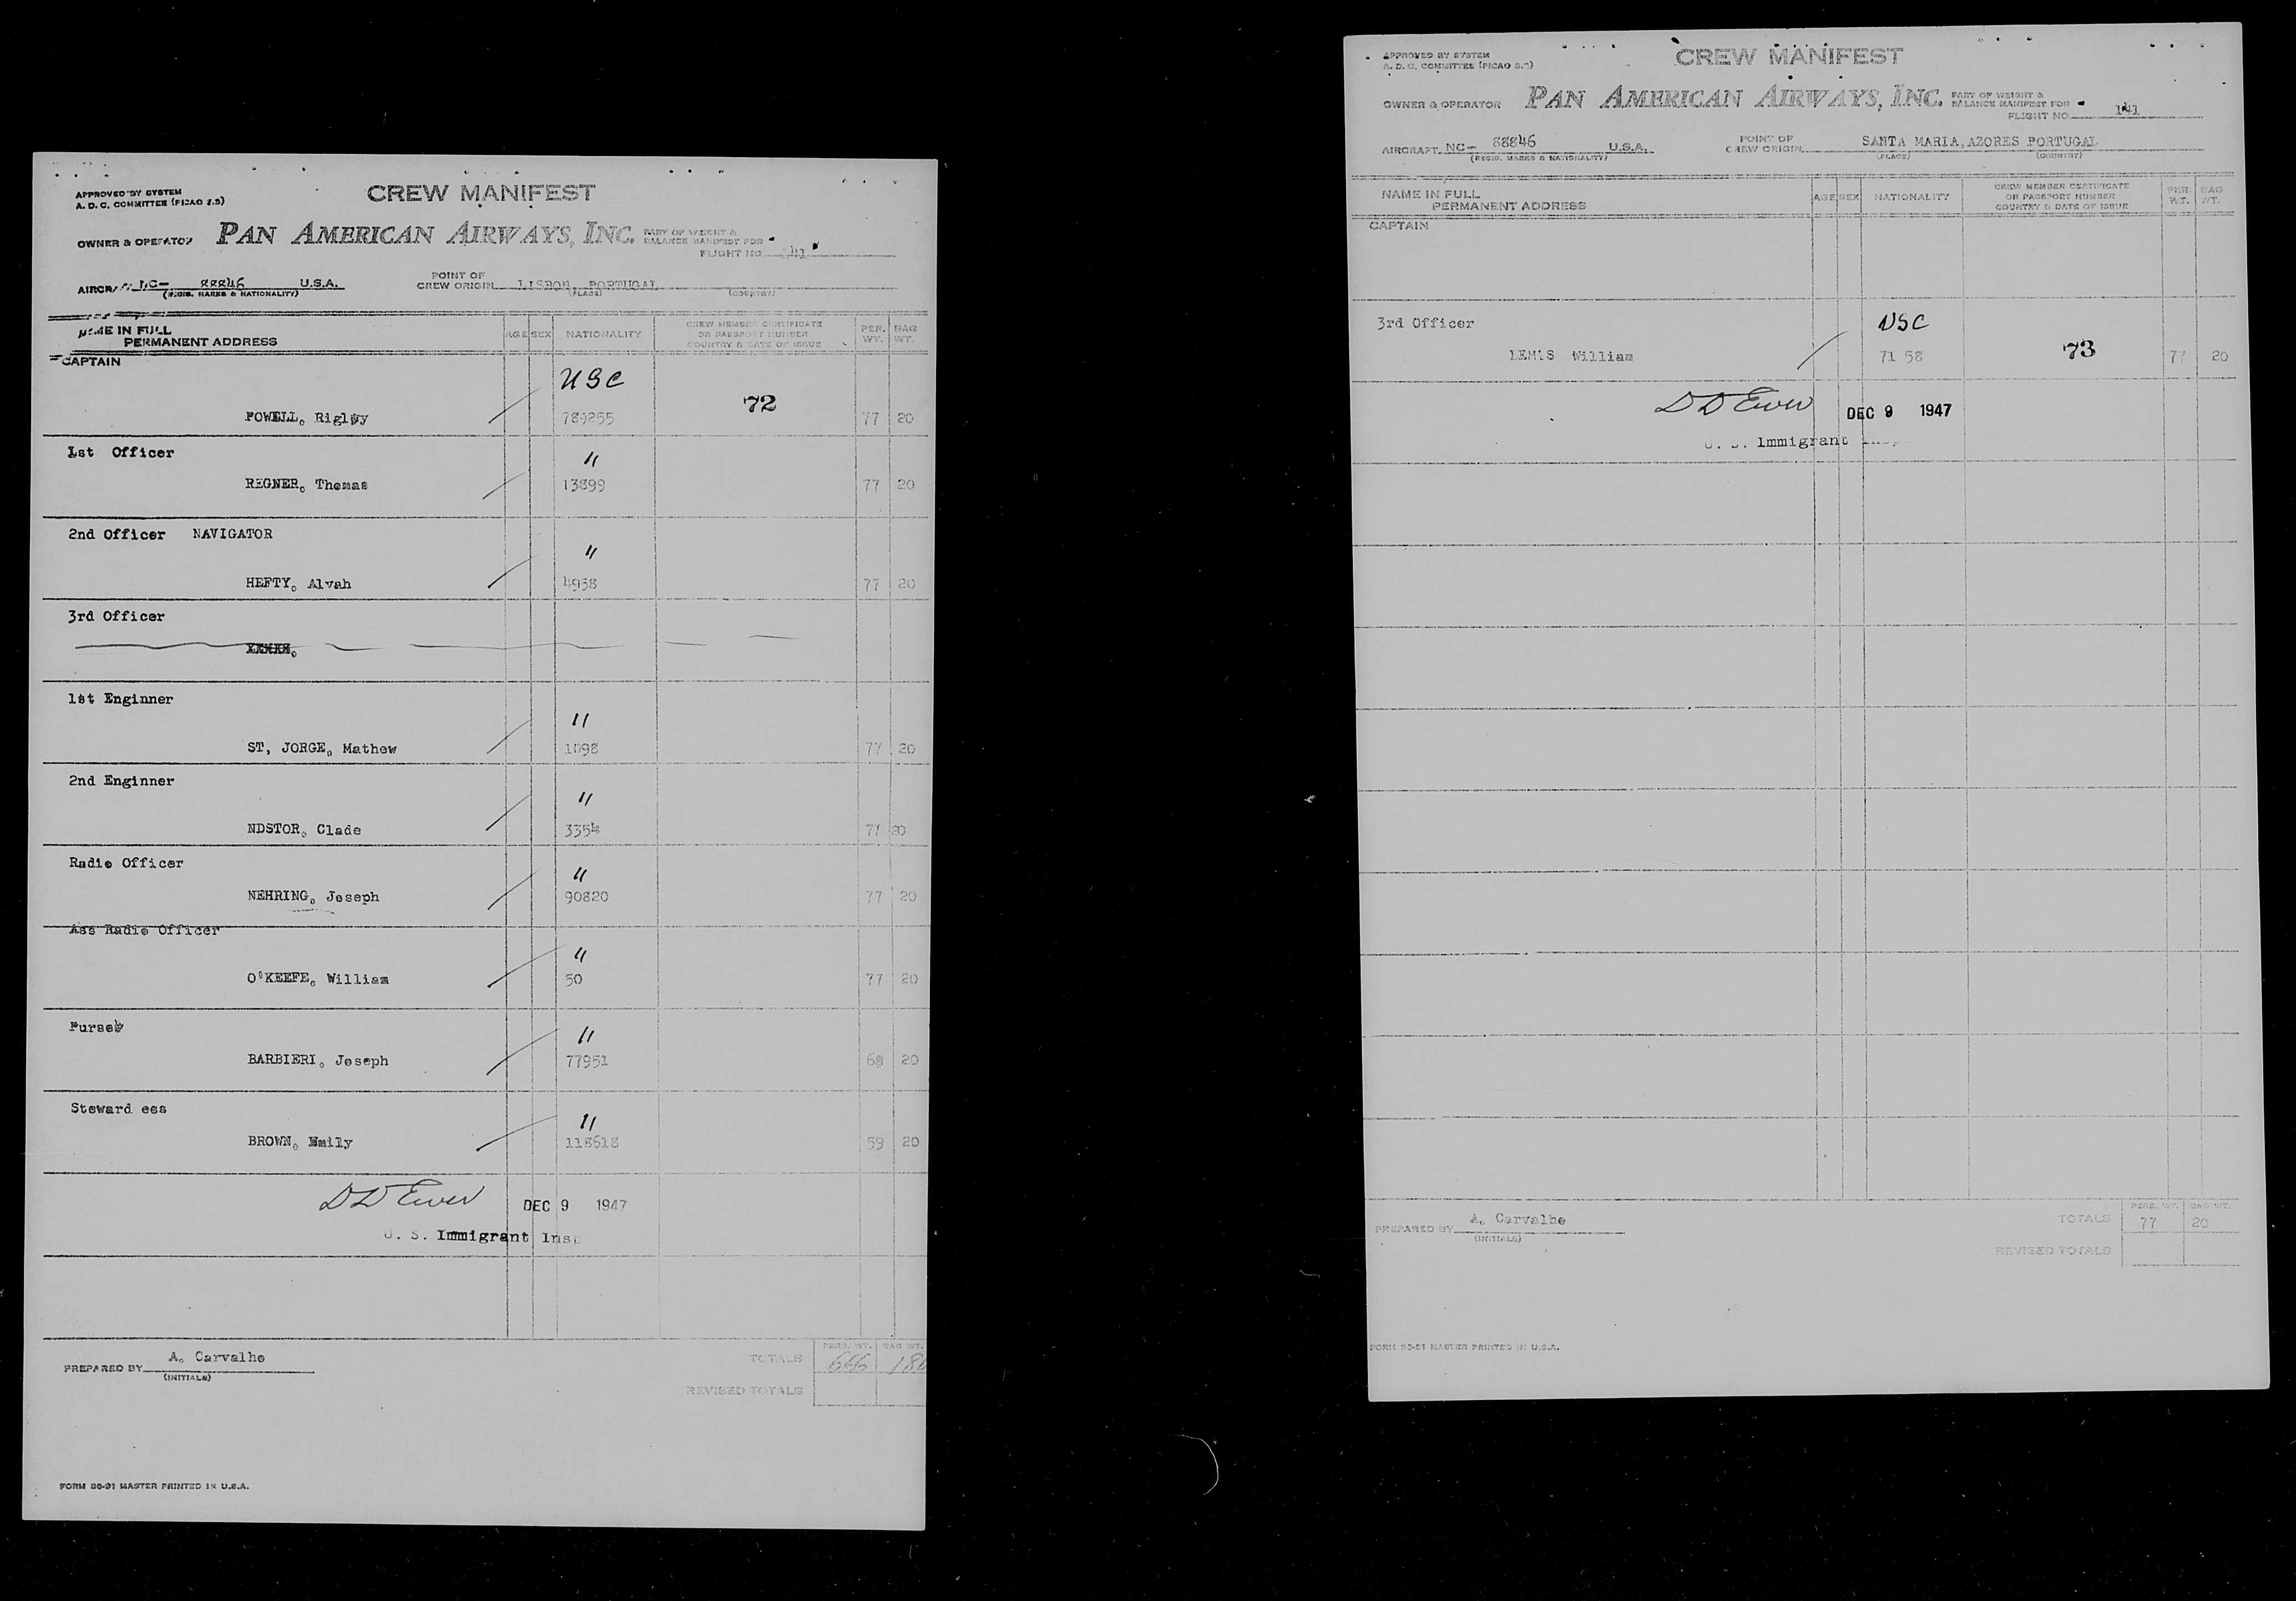 APPROVED BY SYSTEM
A. D. C. COMMITTEE (PICAO 2.5)
CREW MANIFEST
OWNER & OPERATOR PAN AMERICAN AIRWAYS, INC. PART OF WEIGHT &
BALANCE MANIFEST FOR
FLIGHT NO. 141
AIRCRAFT NC- 88846 U.S.A.
(REGIS. MARKS & NATIONALITY)
POINT OF
CREW ORIGIN LISBON, PORTUGAL
(PLACE) (COUNTRY)
NAME IN FULL
PERMANENT ADDRESS
AGE SEX NATIONALITY
CREW MEMBER CERTIFICATE
OR PASSPORT NUMBER
COUNTRY & DATE OF ISSUE
PER. WT. BAG WT.
CAPTAIN
USC
72
POWELL, Rigley 789255 77 20
1st Officer
"
REGNER, Thomas 13899 77 20
2nd Officer NAVIGATOR
"
HEFTY, Alvah 4958 77 20
3rd Officer
1st Enginner
"
ST, JORGE, Mathew 1098 77 20
2nd Enginner
"
NDSTOR, Clade 3354 77 20
Radio Officer
"
NEHRING, Joseph 90820 77 20
Ass Radio Officer
"
O'KEEFE, William 50 77 20
Purser
"
BARBIERI, Joseph 77951 68 20
Steward ess
"
BROWN, Emily 118618 59 20
D D Ewer DEC 9 1947
U. S. Immigrant Insp
PREPARED BY A. Carvalho
(INITIALS)
PERS. WT. BAG WT.
TOTALS 666 180
REVISED TOTALS
FORM 98-91 MASTER PRINTED IN U.S.A.
APPROVED BY SYSTEM
A. D. C. COMMITTEE (PICAO 2.5)
CREW MANIFEST
OWNER & OPERATOR PAN AMERICAN AIRWAYS, INC. PART OF WEIGHT &
BALANCE MANIFEST FOR
FLIGHT NO. 141
AIRCRAFT NC- 88846 U.S.A.
(REGIS. MARKS & NATIONALITY)
POINT OF
CREW ORIGIN SANTA MARIA, AZORES PORTUGAL
(PLACE) (COUNTRY)
NAME IN FULL
PERMANENT ADDRESS
AGE SEX NATIONALITY
CREW MEMBER CERTIFICATE
OR PASSPORT NUMBER
COUNTRY & DATE OF ISSUE
PER. WT. BAG WT.
CAPTAIN
3rd Officer USC
LEMIS William 71 58 73 77 20
D D Ewer DEC 9 1947
U. S. Immigrant Insp
PREPARED BY A. Carvalho
(INITIALS)
PERS. WT. BAG WT.
TOTALS 77 20
REVISED TOTALS
FORM 98-91 MASTER PRINTED IN U.S.A.